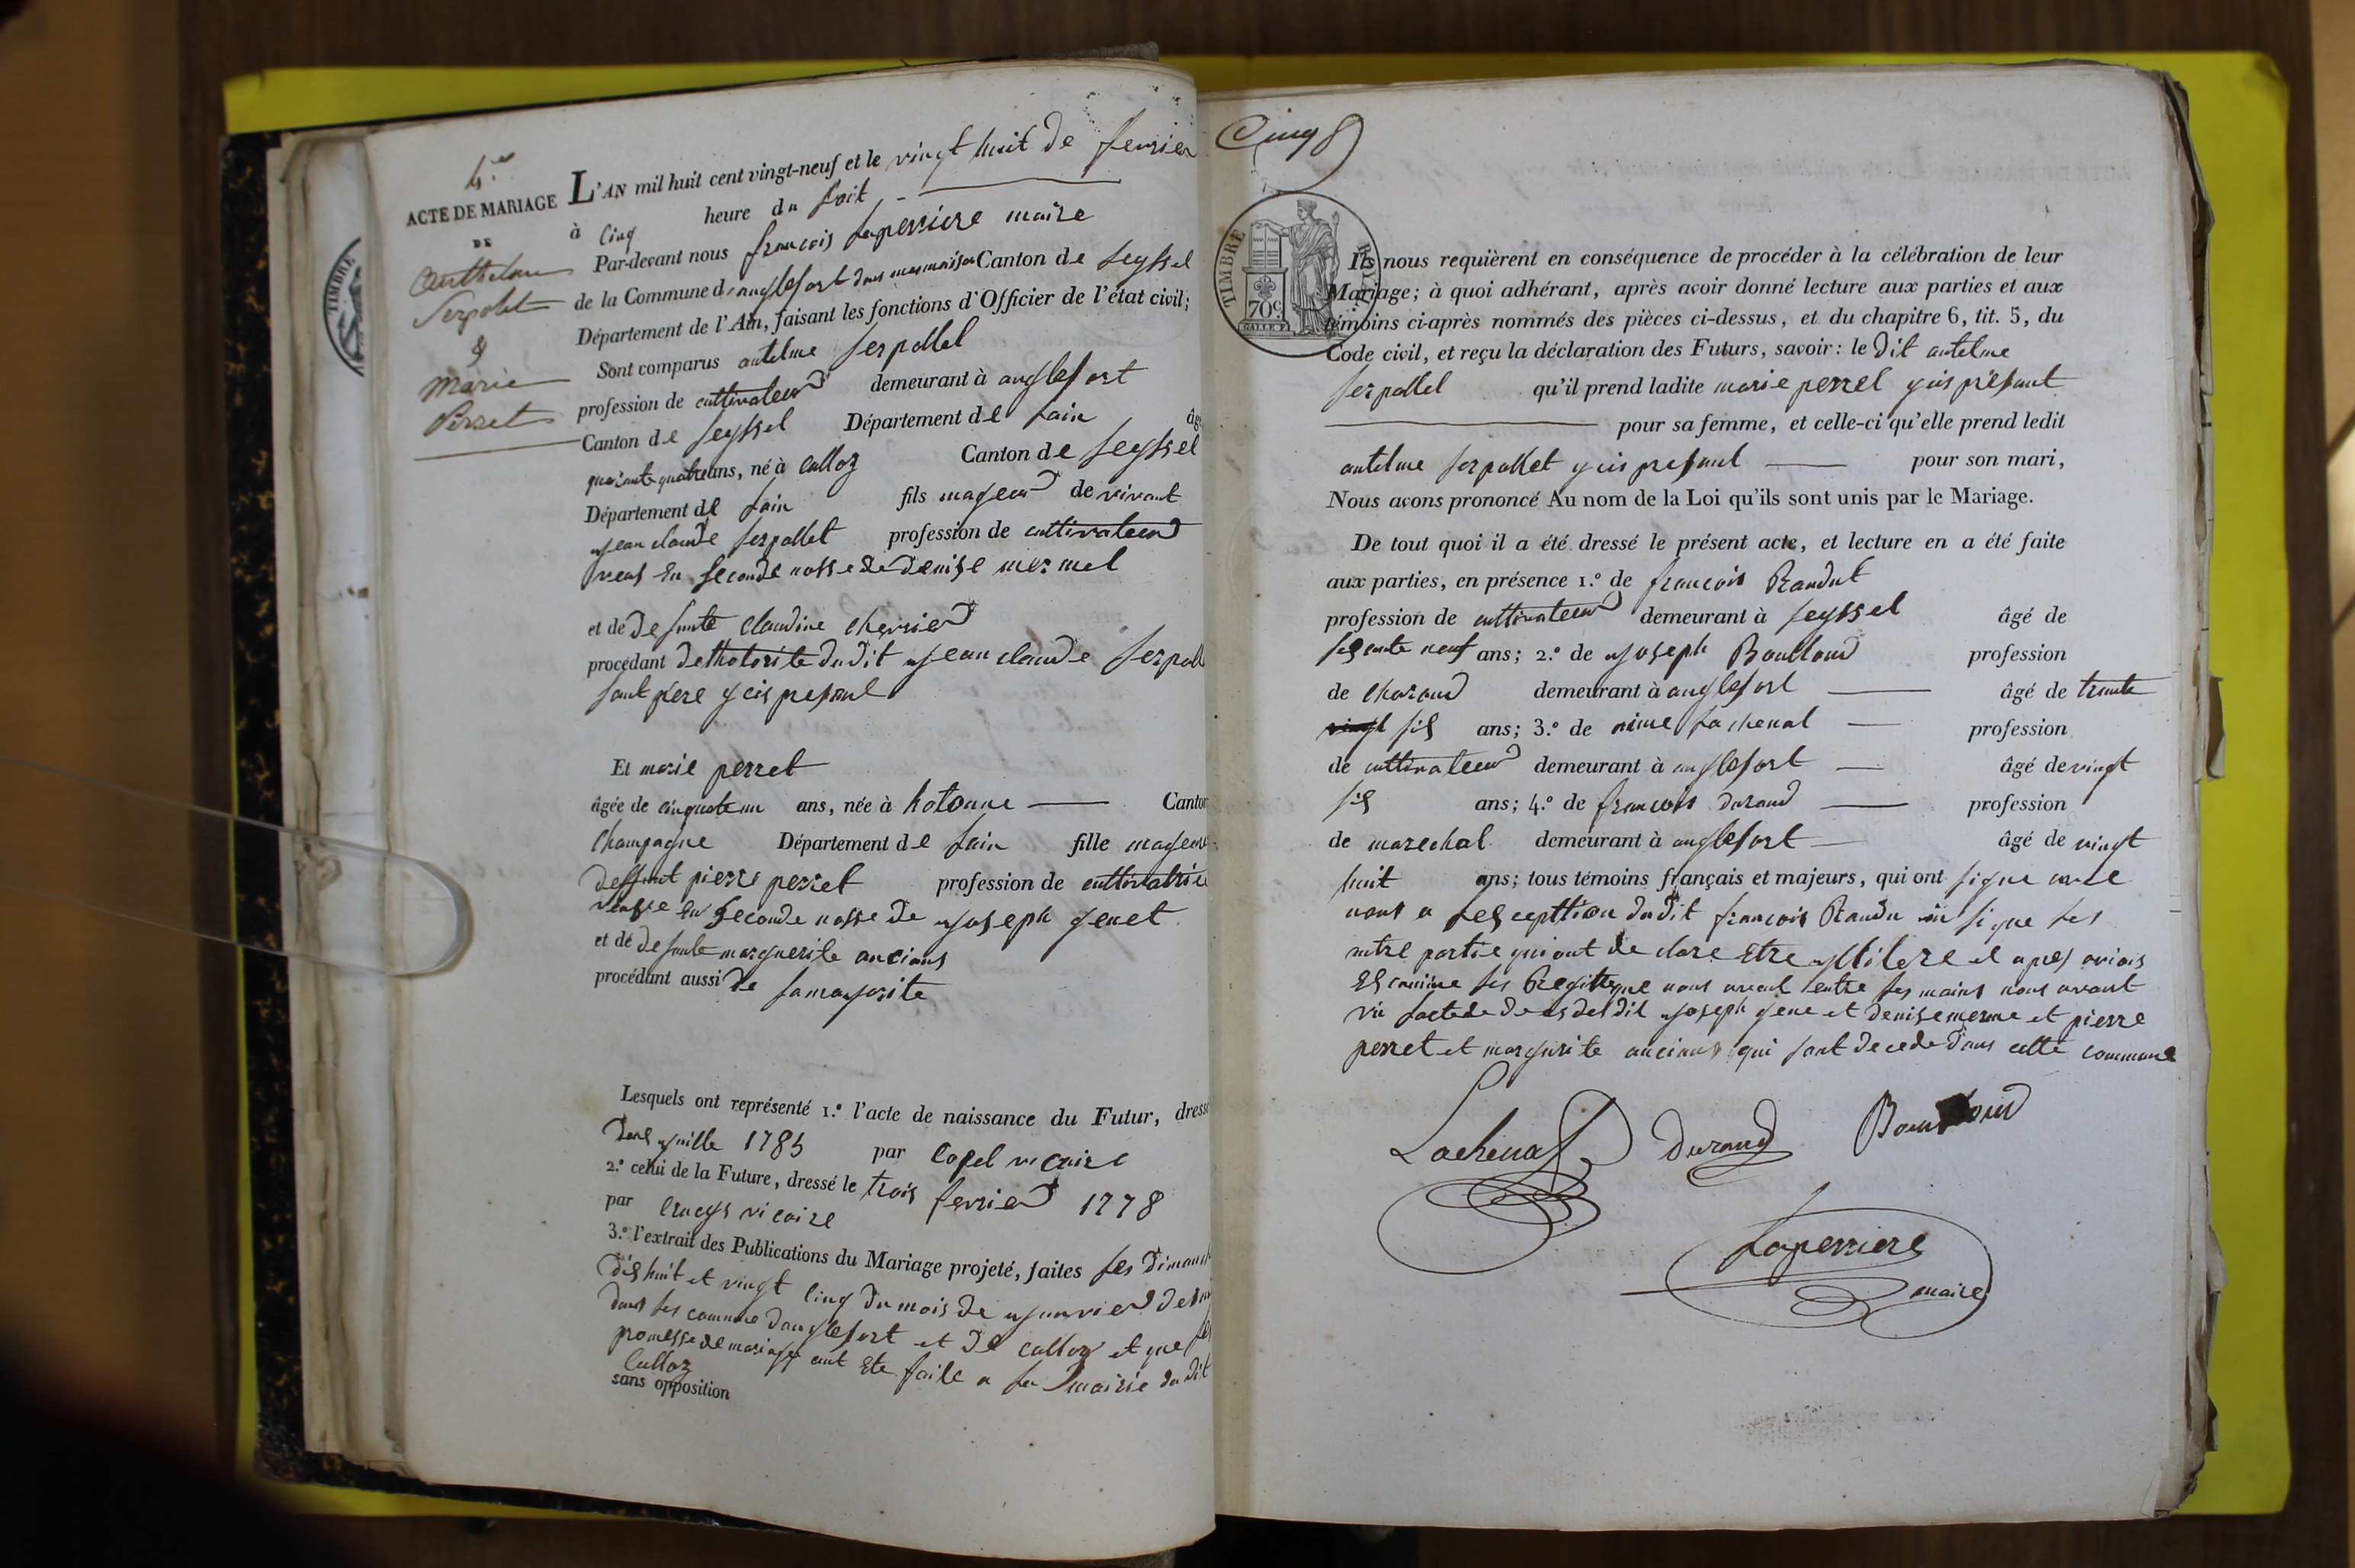 4.e
ACTE DE MARIAGE
DE
Anthelme
Serpolet
&
Marie
Perret
L'AN mil huit cent vingt-neuf et le vingt huit de fevrier
à cinq heure du soit
Par-devant nous francois Laperriere maire
de la Commune d'anglefort dans mes maison Canton de seyssel
Département de l'Ain, faisant les fonctions d'Officier de l'état civil;
Sont comparus antelme serpollet
profession de cultivateur demeurant à anglefort
Canton de seyssel Département de Lain âgé
quarante quatre ans, né à culloz Canton de seyssel
Département de Lain fils majeur de vivant
jean claude serpollet profession de cultivateur
veuf en seconde nosse de denise mermel
et de defunte claudine chevrier
procédant de lhotorite du dit jean claude serpoll
sont père y cis presant
Et marie perret
âgée de cinquateun ans, née à hotonne Canton
champagne Département de Lain fille majeure
deffunt pierre perret profession de cultivatrice
veusse en seconde nosse de joseph genet
et de defunte marguerite ancians
procédant aussi de samajorite
Lesquels ont représenté 1.º l'acte de naissance du Futur, dressé
juille 1785 par Copel vicaire
2.º celui de la Future, dressé le trois fevrier 1778
par vicaire
3.º l'extrait des Publications du Mariage projeté, faites les dimanch
dishuit et vingt cinq du mois de janvier
dans les commune danglefort et de culloz et que les
promesse de mariage ont ete faite a la mairie du dit
culloz
sans opposition
Cinq
TIMBRE ROYAL
70c
Ils nous requièrent en conséquence de procéder à la célébration de leur
Mariage; à quoi adhérant, après avoir donné lecture aux parties et aux
témoins ci-après nommés des pièces ci-dessus, et du chapitre 6, tit. 5, du
Code civil, et reçu la déclaration des Futurs, savoir: le dit antelme
serpollel qu'il prend ladite marie perrel y cis présant
pour sa femme, et celle-ci qu'elle prend ledit
antelme serpollet y cis presant pour son mari,
Nous avons prononcé Au nom de la Loi qu'ils sont unis par le Mariage.
De tout quoi il a été dressé le présent acte, et lecture en a été faite
aux parties, en présence 1.º de francois Randut
profession de cultivateur demeurant à seyssel âgé de
sesente neuf ans; 2.º de joseph Boulloud profession
de charond demeurant à anglefort âgé de trante
vingt sis ans; 3.º de aime Lachenal profession
de cultivateur demeurant à anglefort âgé de vingt
sis ans; 4.º de francois durand profession
de marechal demeurant à anglefort âgé de vingt
huit ans; tous témoins français et majeurs, qui ont signe avec
nous a lesception du dit francois Randu ni signe les
autre partie qui ont de clare etre et apres avions
escamine les Regitte que nous avont entre les mains nous avont
vu lacte de des dit joseph gene et denise merme et pierre
perret et margurite ancians qui sont decede dans cette commune
Lachenal Durand Boulloud
Laperriere
maire